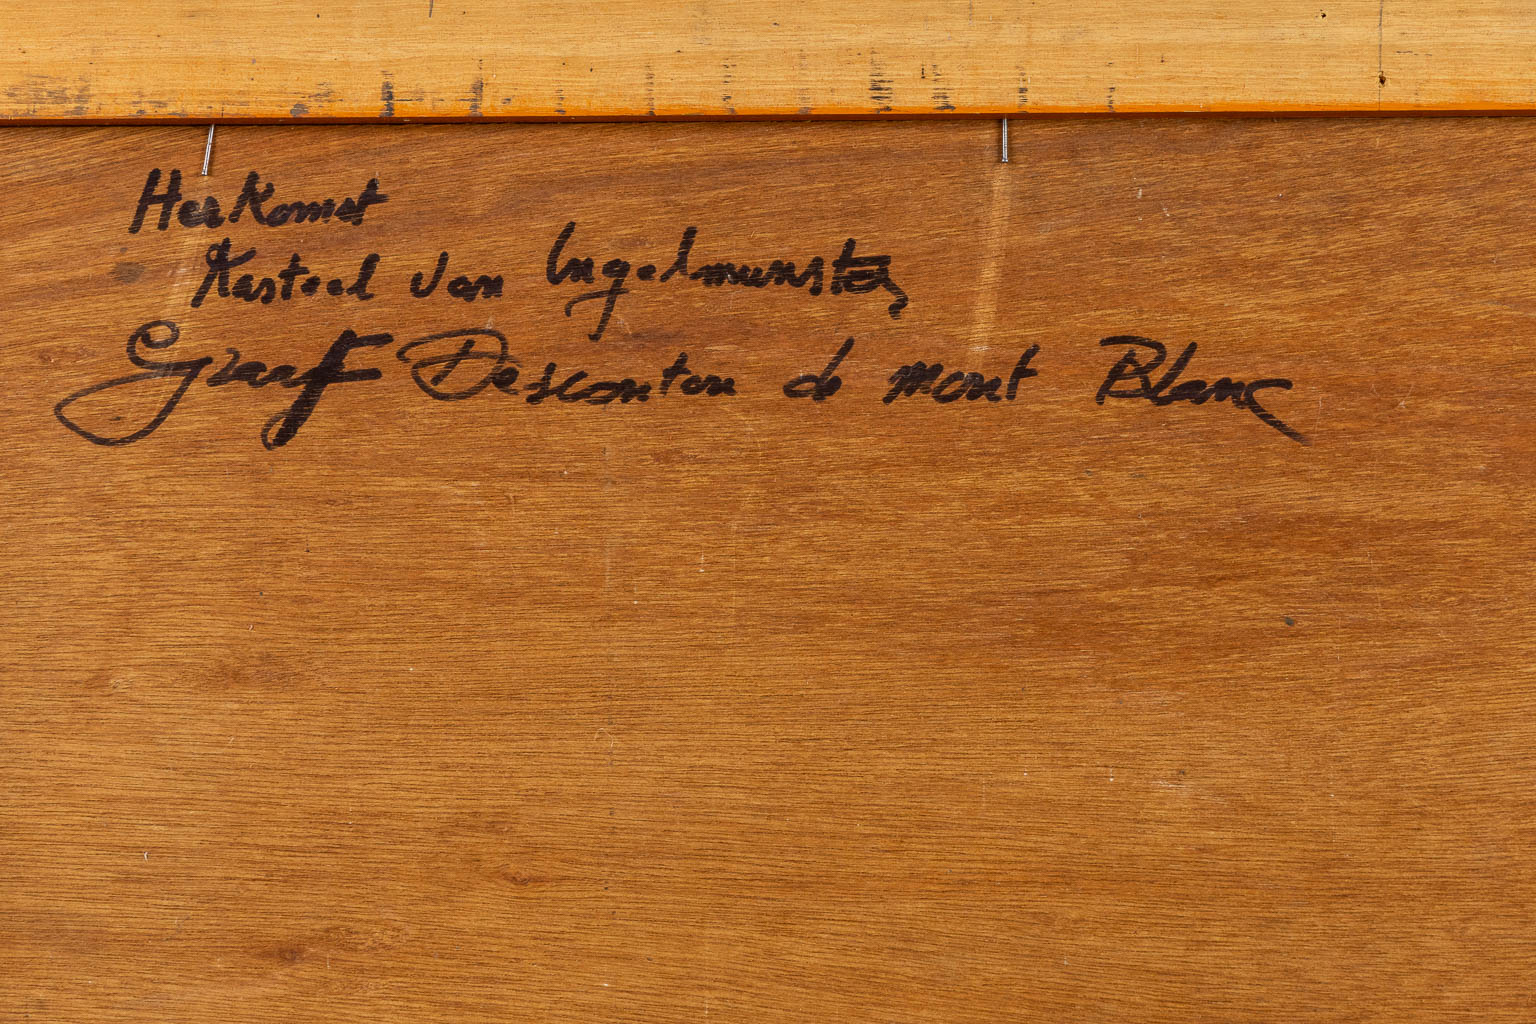 Herkomst
Kasteel van Ingelmunster
Graaf Descanton de mont Blanc